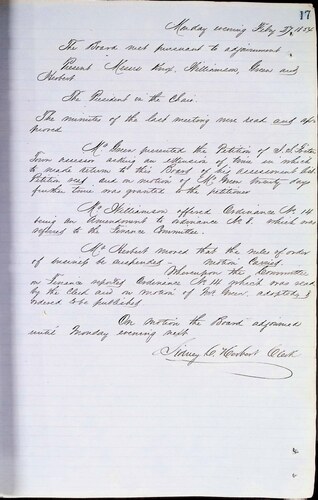 17
Monday evening Feby 27, 18
The Board met pursuant to adjournment
Present Messrs King, Williamson, Green and
Herbert.
The President in the Chair
The minutes of the last meeting were read and ap-
proved
Mr Green presented the Petition of
Town assessor asking an extension of time in which
to made return to this Board of his assessment list
Petition read and on motion of Mr Green twenty days
further time was granted to the petitioner
Mr Williamson offered Ordinance No 14
being an Amendment to ordinance No 8. which was
referred to the Finance Committee.
Mr Herbert moved that the rules of order
of business be suspended — Motion Carried
Whereupon the Committee
on Finance reported Ordinance No 14 which was read
by the Clerk and on motion of Mr Green, adopted &
ordered to be published
On Motion the Board adjourned
until Monday evening next
Sidney C. Herbert Clerk